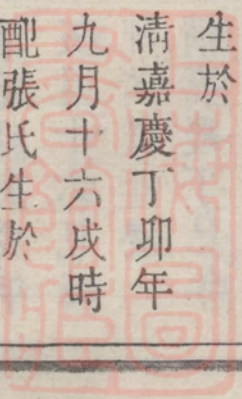 生於
清嘉慶丁卯年
九月十六戌時
配張氏生於